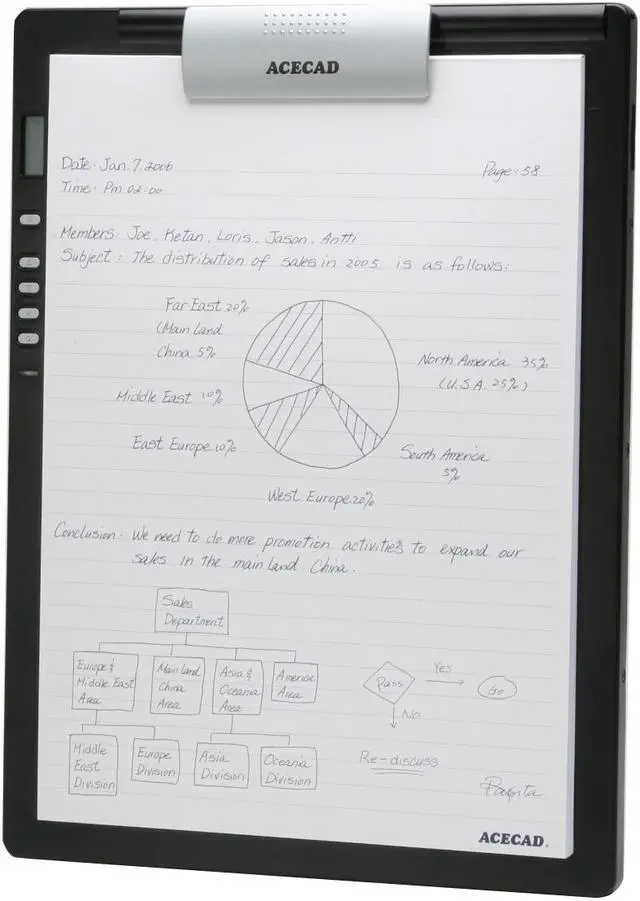 ACECAD
Date: Jan. 7. 2006
Page: 58
Time: Pm 02:00
Members: Joe, Ketan, Loris, Jason, Antti
Subject: The distribution of sales in 2005 is as follows:
Far East 20%
(Main land
China 5%
North America 35%
(U.S.A. 25%)
Middle East 10%
East Europe 10%
South America
5%
West Europe 20%
Conclusion: We need to do more promotion activities to expand our
sales in the main land China.
Sales
Department
Europe &
Middle East
Area
Main land
China
Area
Asia &
Oceania
Area
America
Area
Pass
Yes
Go
No
Middle
East
Division
Europe
Division
Asia
Division
Oceania
Division
Re-discuss
ACECAD®